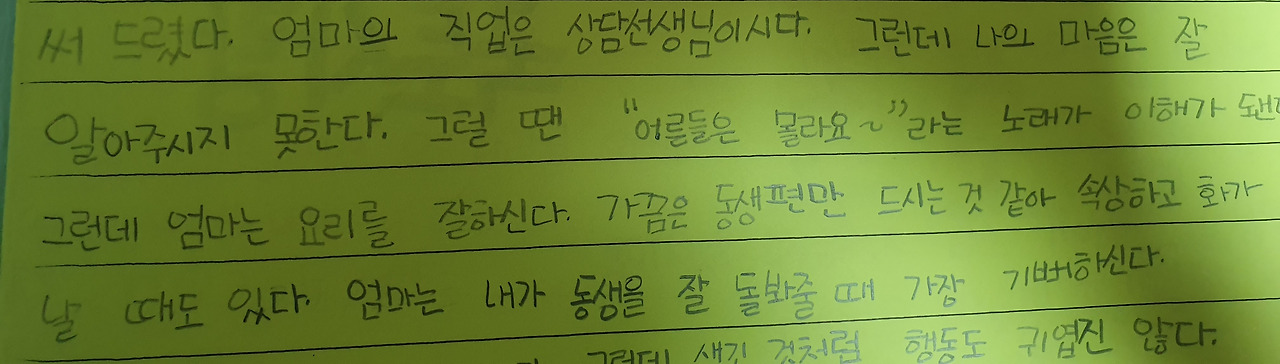 써 드렸다. 엄마의 직업은 상담선생님이시다. 그런데 나의 마음은 잘
알아주시지 못한다. 그럴 땐 "어른들은 몰라요~"라는 노래가 이해가 됀다
그런데 엄마는 요리를 잘하신다. 가끔은 동생편만 드시는 것 같아 속상하고 화가
날 때도 있다. 엄마는 내가 동생을 잘 돌봐줄 때 가장 기뻐하신다.
그런데 생긴 것처럼 행동도 귀엽진 않다.